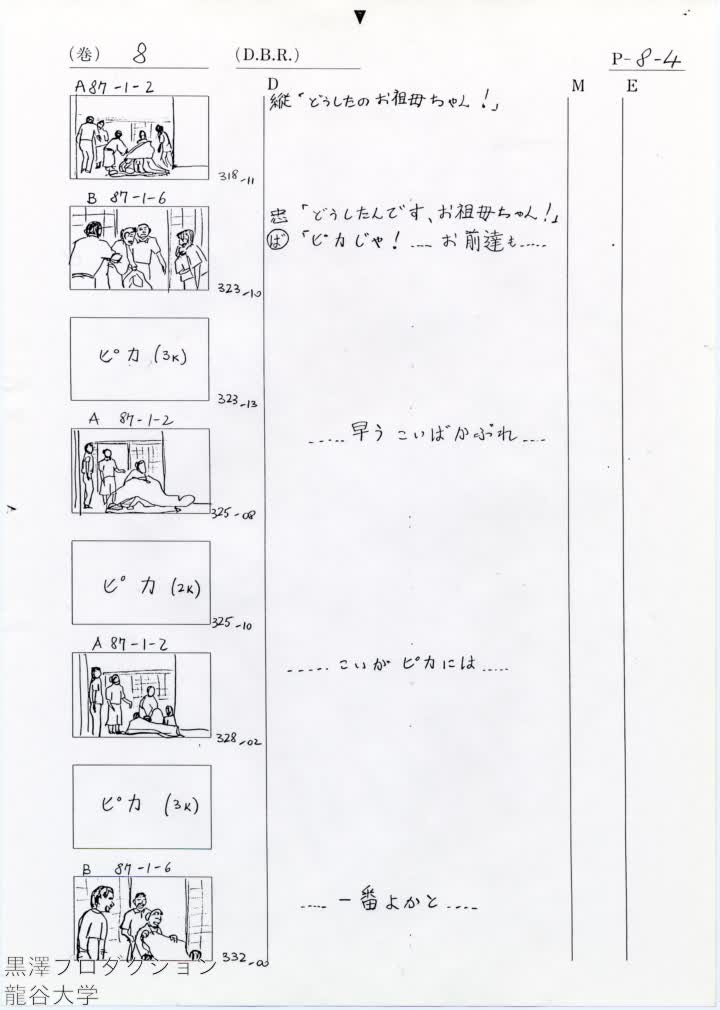 (巻) 8 (D.B.R.) P-8-4
D M E
A 87-1-2
縦「どうしたの お祖母ちゃん!」
318-11
B 87-1-6
忠「どうしたんです、お祖母ちゃん!」
ば「ピカじゃ! ..... お前達も.....
323-10
ピカ (3K)
323-13
A 87-1-2
.....早う こいばかぶれ....
325-08
ピカ (2K)
325-10
A 87-1-2
.....こいが ピカには.....
328-02
ピカ (3K)
B 87-1-6
.....一番よかと.....
332-00
黒澤プロダクション
龍谷大学